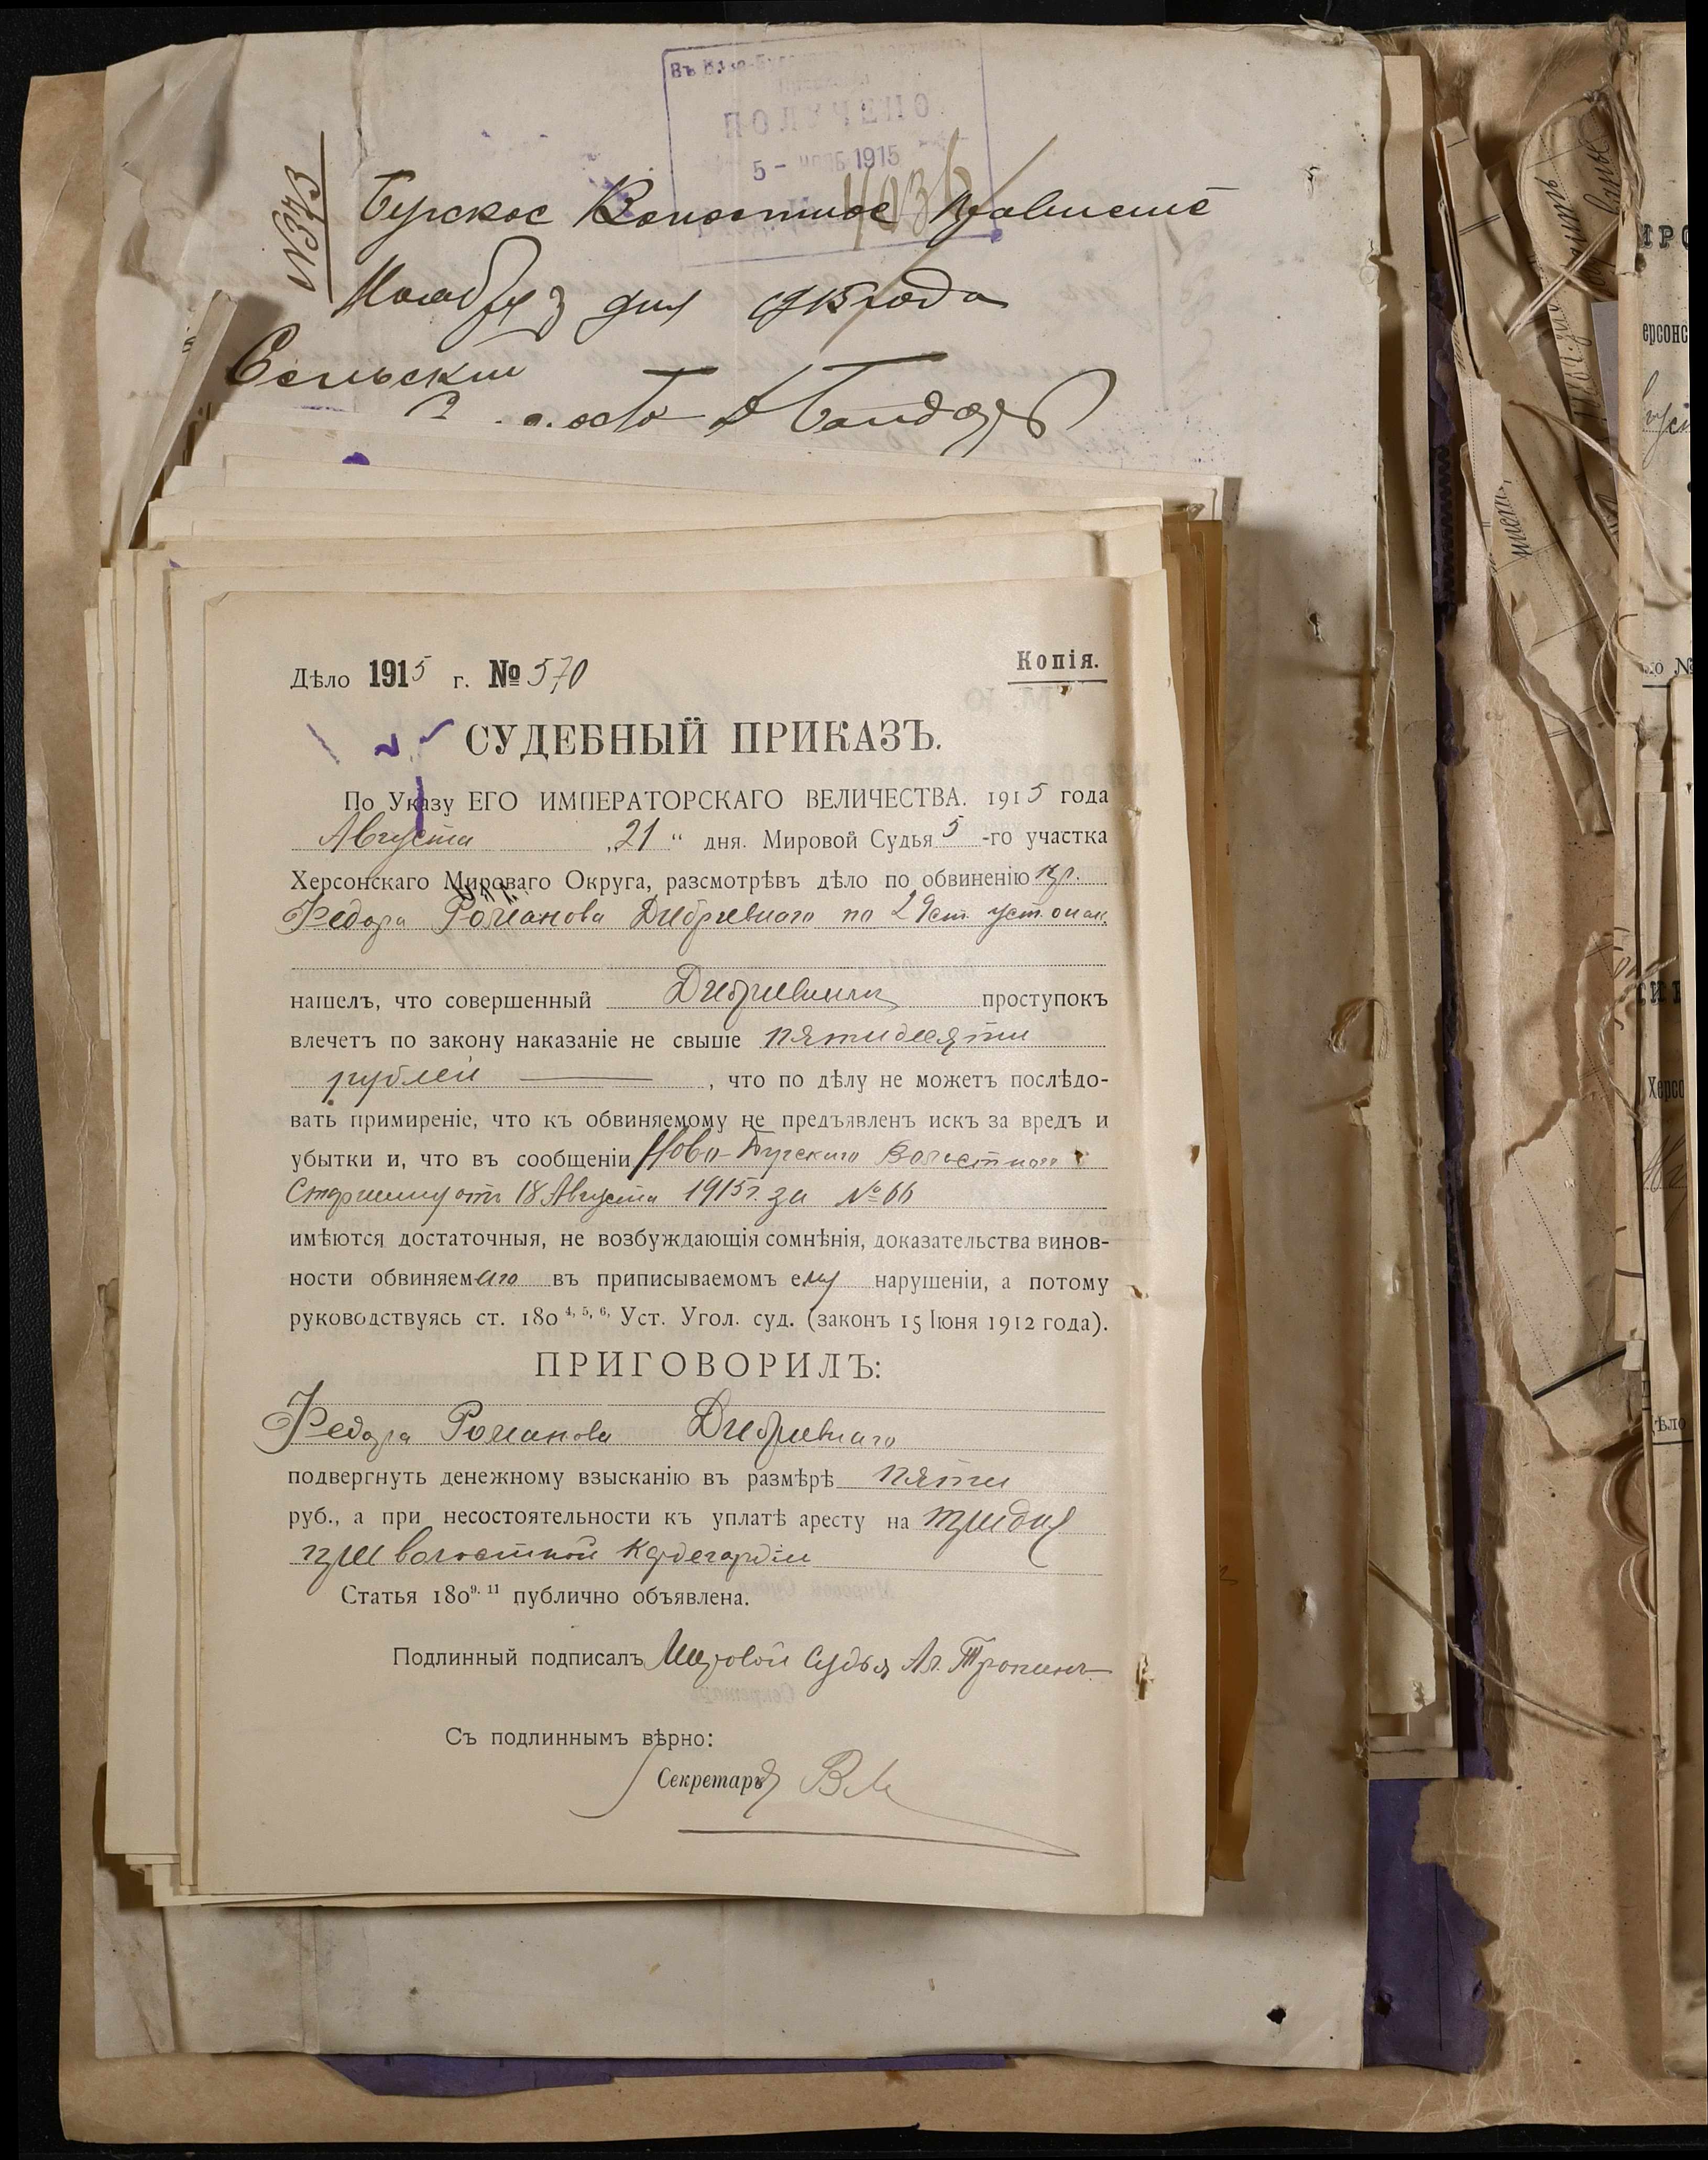 ПОЛУЧЕНО
5 - 1915
№373
Бугское Волостное Правление
Ноября 3 дня 1915 года
Сельский
Дѣло 1915 г. № 570
Копія.
СУДЕБНЫЙ ПРИКАЗЪ.
По Указу ЕГО ИМПЕРАТОРСКАГО ВЕЛИЧЕСТВА. 1915 года
Августа „21“ дня. Мировой Судья 5-го участка
Херсонскаго Мирового Округа, разсмотрѣвъ дѣло по обвиненію кр.
Федора Романова по 29 ст. уст. о нак.
нашелъ, что совершенный проступокъ
влечетъ по закону наказаніе не свыше пятидесяти
рублей —, что по дѣлу не можетъ послѣдо-
вать примиреніе, что къ обвиняемому не предъявленъ искъ за вредъ и
убытки и, что въ сообщеніи Ново-Бугскаго Волостного
Старшины отъ 18 Августа 1915 г. за № 66
имѣются достаточныя, не возбуждающія сомнѣнія, доказательства винов-
ности обвиняемаго въ приписываемомъ ему нарушеніи, а потому
руководствуясь ст. 180 4, 5, 6, Уст. Угол. суд. (законъ 15 Іюня 1912 года).
ПРИГОВОРИЛЪ:
Федора Романова
подвергнуть денежному взысканію въ размѣрѣ пяти
руб., а при несостоятельности къ уплатѣ аресту на три дня
при волостной кордегардіи
Статья 180 9, 11 публично объявлена.
Подлинный подписалъ Мировой Судья Ал. Тропинъ
Съ подлиннымъ вѣрно:
Секретарь